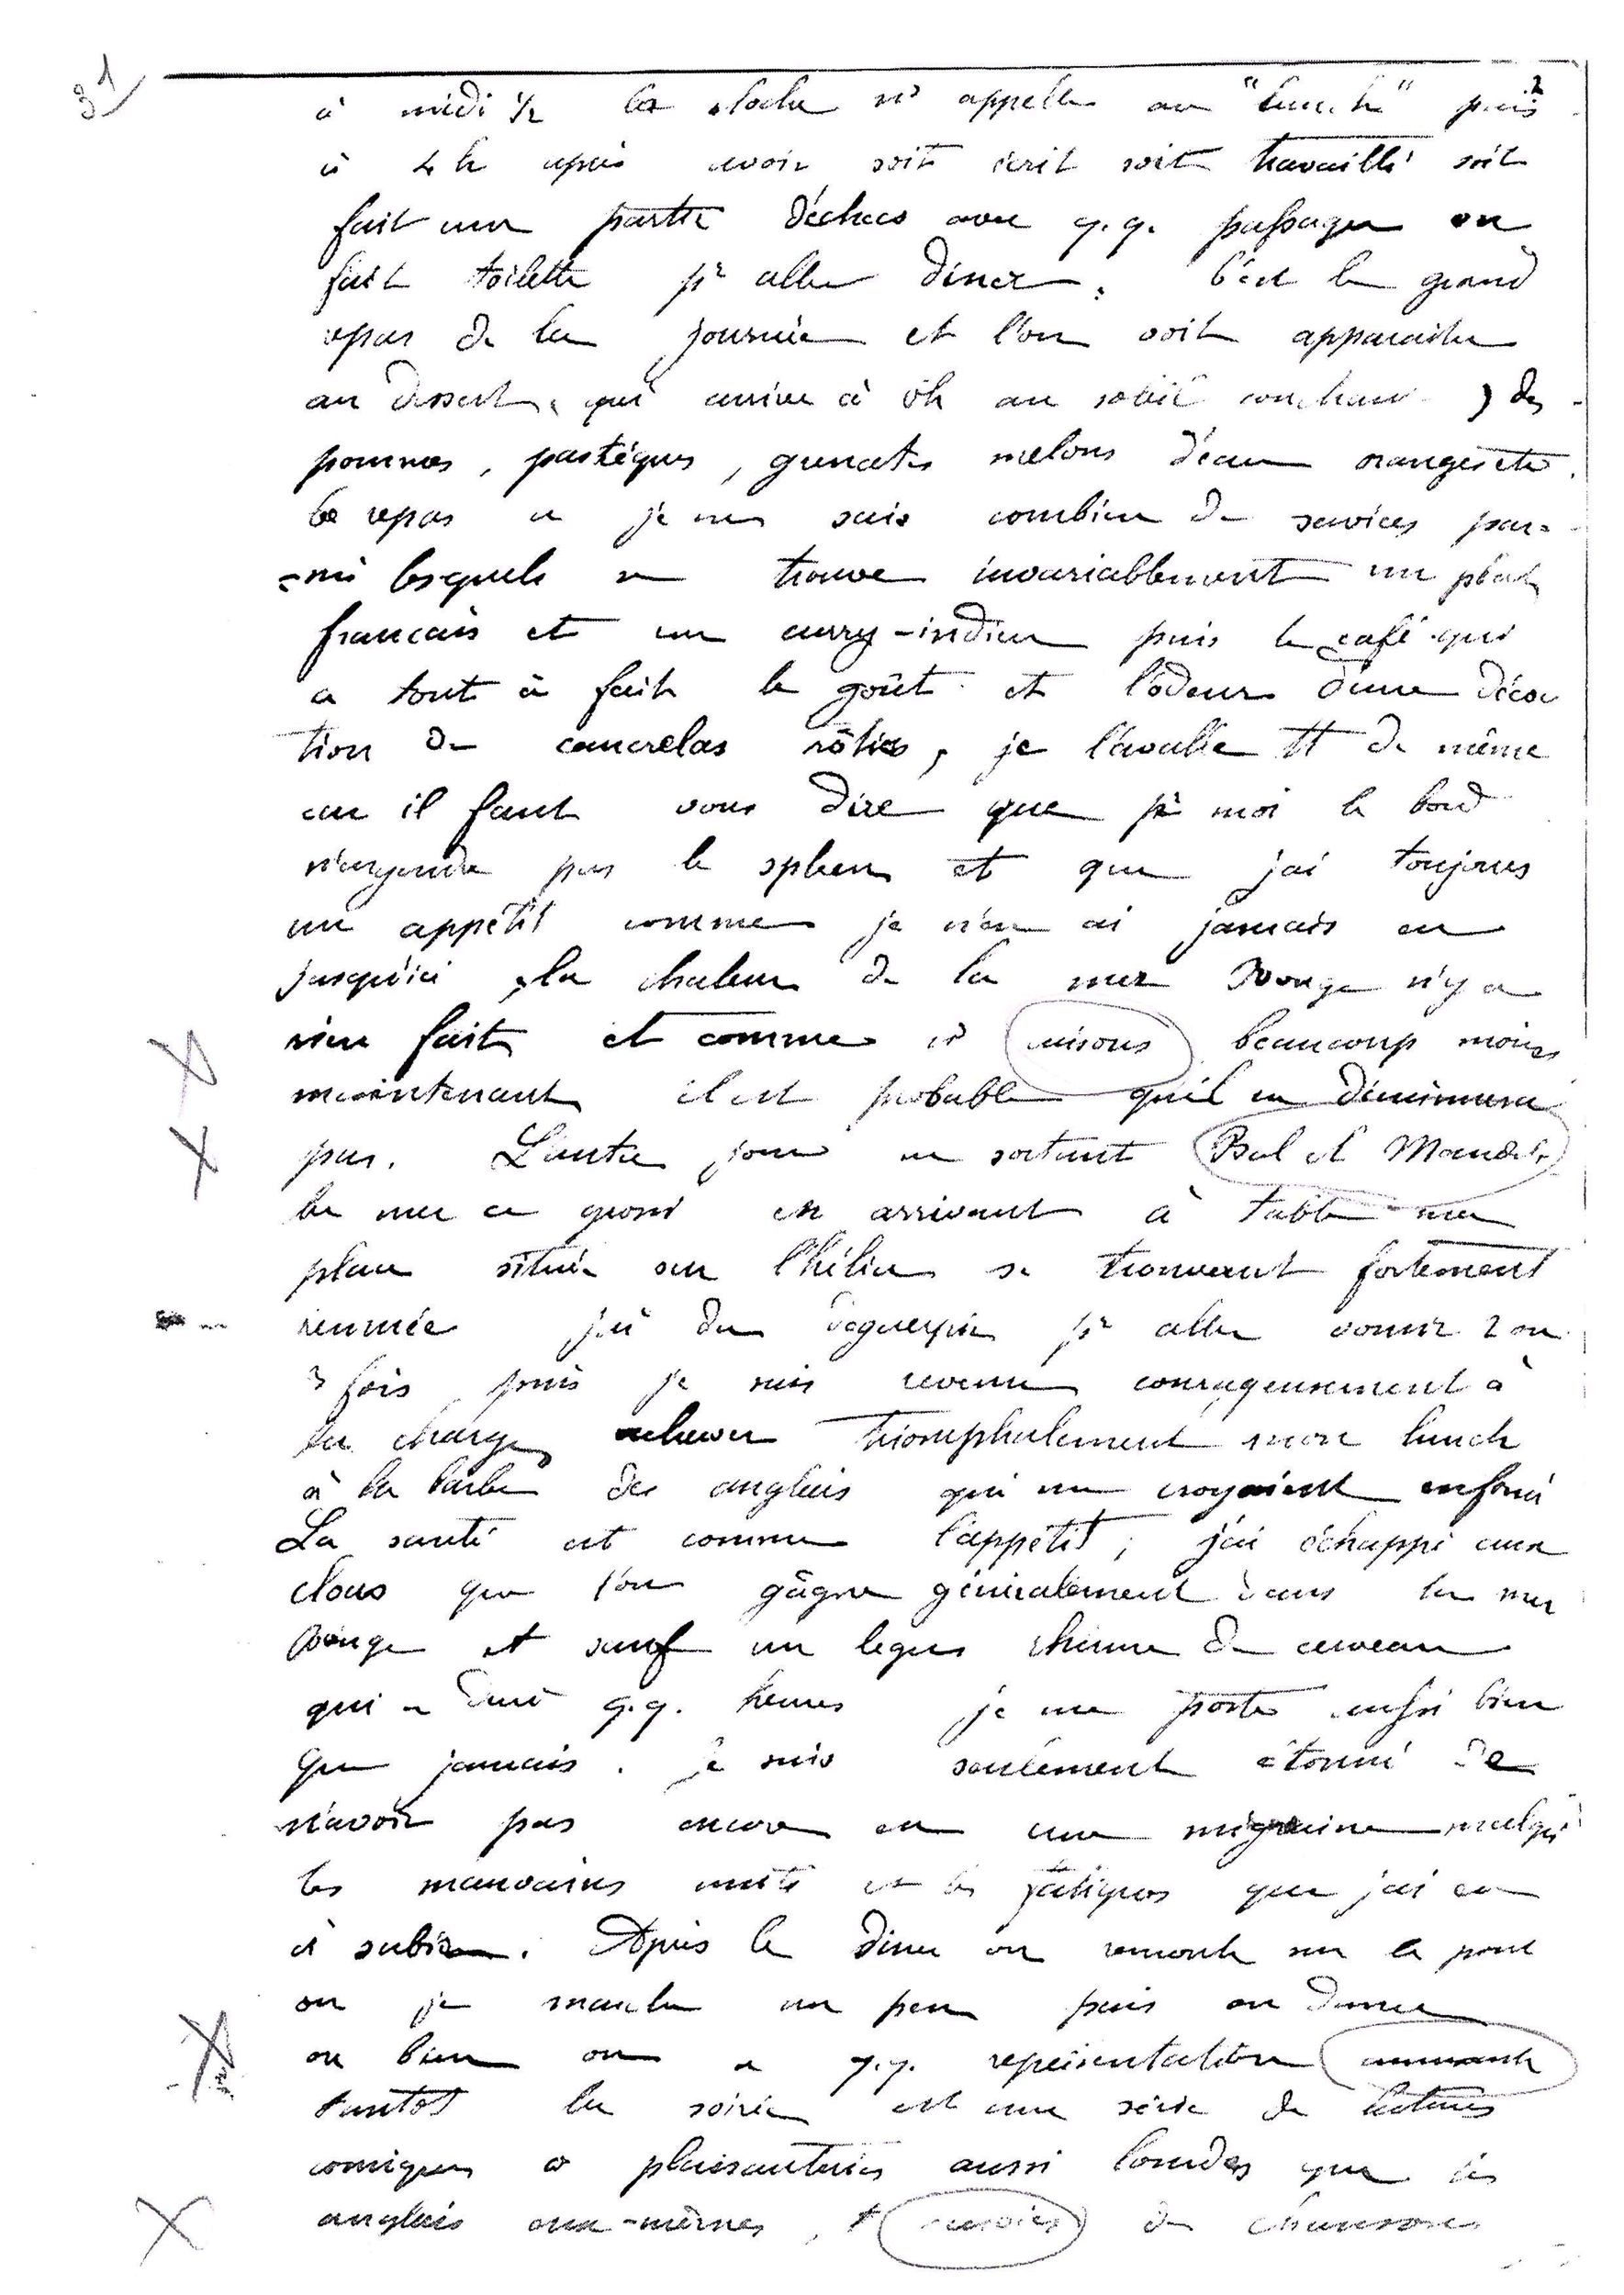 31
à midi 1/2 la cloche ns appelle au "lunch" puis
à 4 h après avoir soit écrit soit travaillé soit
fait une partie d'échecs avec q.q. passager on
fait toilette pr aller diner. C'est le grand
repas de la journée et l'on voit apparaitre
au dessert, qui arrive à 6h au soleil couchant ) des
pommes, pastèques, grenates melons d'eau oranges etc.
Ce repas a je ne sais combien de services par=
=mi lesquels on trouve invariablement un plat
francais et un curry-indien puis le café qui
a tout à fait le goût et l'odeur d'une décoc
tion de cancrelas rôtis, je l'avalle tt de même
car il faut vous dire que pr moi le bord
n'engendre pas le spleen et que j'ai toujours
un appétit comme je n'en ai jamais eu
jusqu'ici, la chaleur de la mer Rouge n'y a
rien fait et comme ns cuisons beaucoup moins
maintenant il est probable qu'il ne diminuera
pas. L'autre jour en sortant Bal el Mandeb
la mer a grossi en arrivant à table ma
place située sur l'hélice se trouvant fortement
remuée j'ai du déguerpir pr aller vomir 2 ou
3 fois puis je suis revenu courageusement à
la charge achever triomphalement mon lunch
à la barbe des anglais qui me croyaient enfoncé
La santé est comme l'appétit ; j'ai échappé aux
clous que l'on gâgne généralement dans la mer
Rouge et sauf un leger rhume de cerveau
qui a duré q.q. heures je me porte aussi bien
que jamais. Je suis seulement étonné de
n'avoir pas encore eu une migraine malgré
les mauvaises nuits et les fatigues que j'ai eu
à subir. Après le diner on remonte sur le pont
ou je marche un peu puis on danse
ou bien on a q.q. représentation
tantot la soirée est une série de lectures
comiques à plaisanteries aussi lourdes que les
anglais eux-mêmes, de chansons